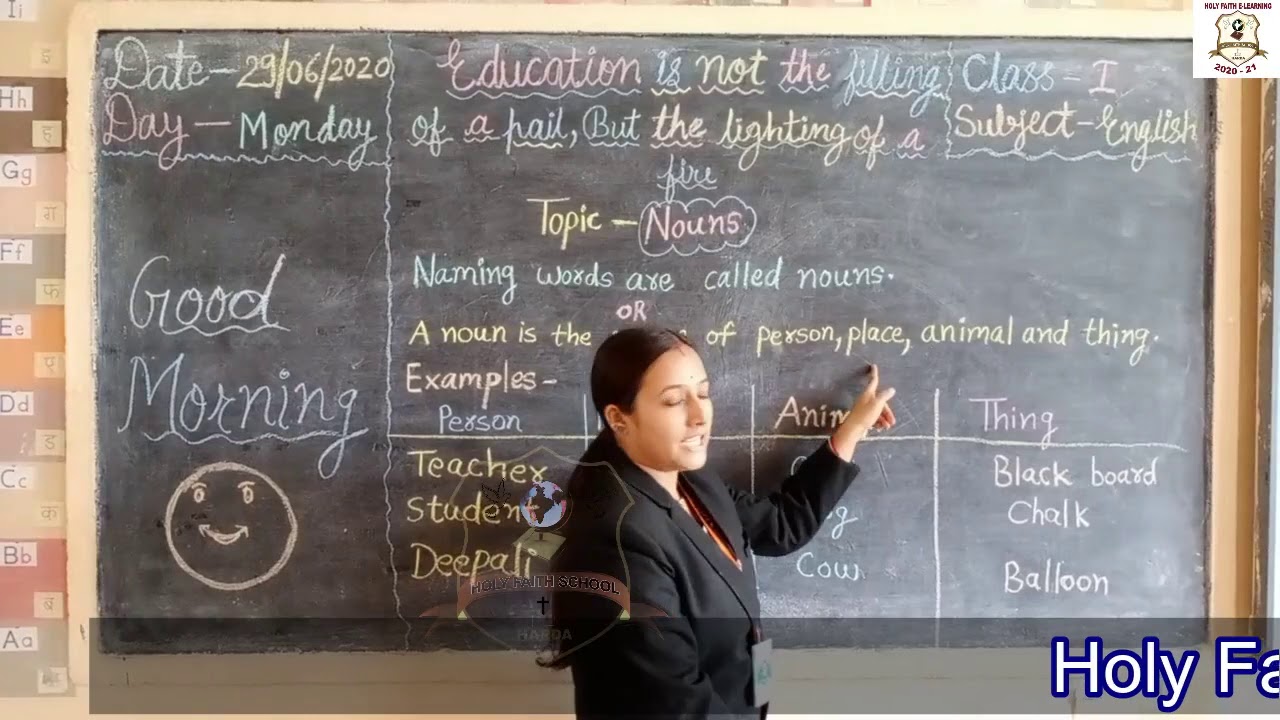 HOLY FAITH E-LEARNING
HARDA
2020 - 21
Date - 29/06/2020
Day - Monday
Education is not the filling
of a pail, But the lighting of a
fire
Class - I
Subject - English
Topic - Nouns
Good
Morning
Naming words are called nouns.
OR
A noun is the of person, place, animal and thing.
Examples-
Person Thing
Teacher Black board
Student Chalk
Deepali Cow Balloon
HOLY FAITH SCHOOL
HARDA
Holy
Ii
Hh
ह
Gg
ग
Ff
फ
Ee
Dd
ड
Cc
क
Bb
ब
Aa